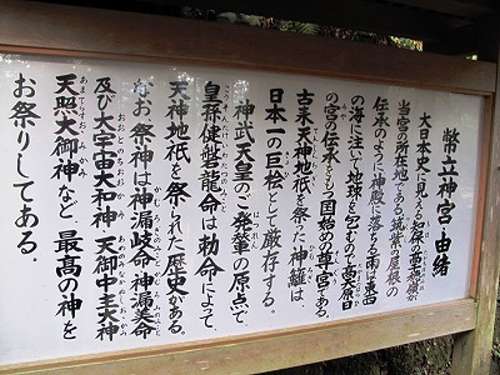 幣立神宮・由緒
大日本史に見える知保の高天原が
当宮の所在地である。筑紫の屋根の
伝承のように神殿に落ちる雨は東西
の海に注いで地球を包むので高天原日
の宮の伝承をもつ国始めの尊宮である。
古来天神地祇を祭った神籬は、
日本一の巨桧として厳存する。
神武天皇のご発輦の原点で、
皇孫健磐龍命は勅命によって、
天神地祇を祭られた歴史がある。
なお祭神は神漏岐命・神漏美命
及び大宇宙大和神・天御中主大神
天照大御神など、最高の神を
お祭りしてある.